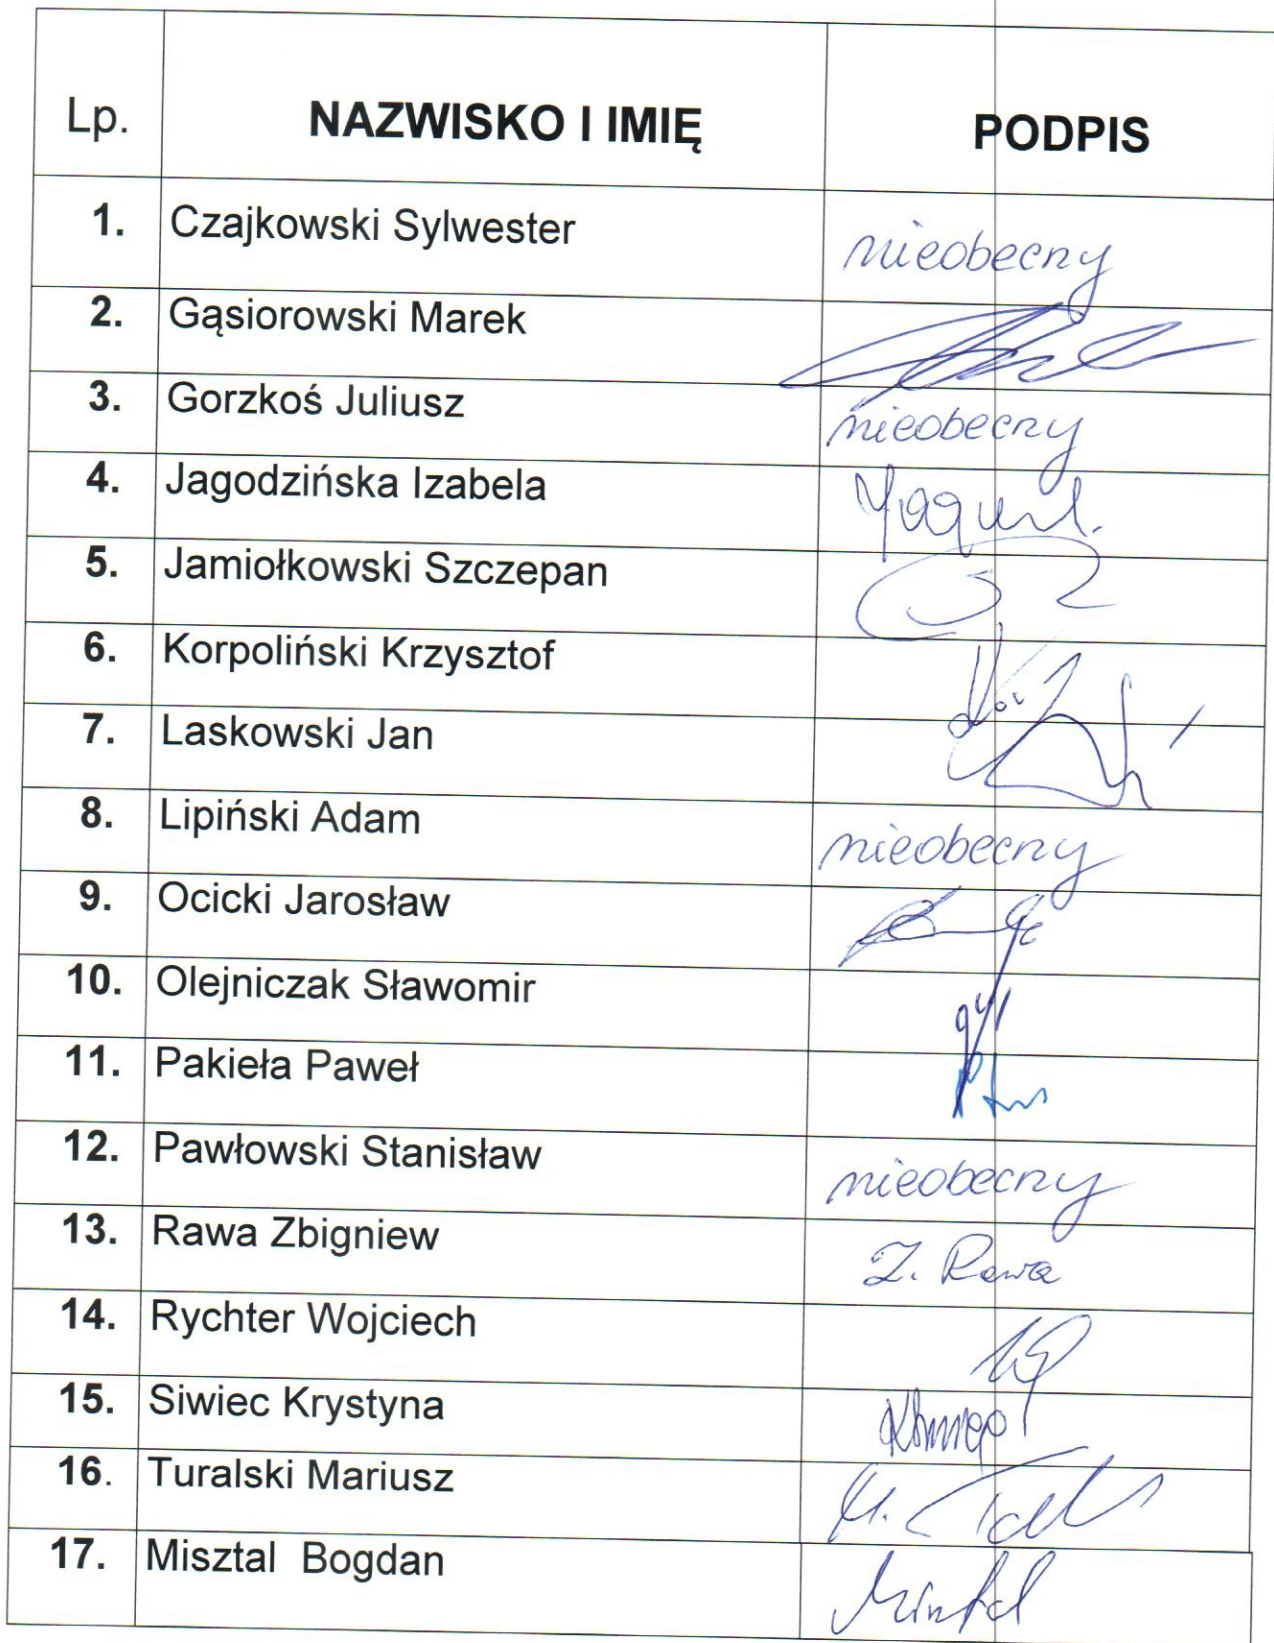 Lp. NAZWISKO I IMIĘ PODPIS
1. Czajkowski Sylwester nieobecny
2. Gąsiorowski Marek
3. Gorzkoś Juliusz nieobecny
4. Jagodzińska Izabela
5. Jamiołkowski Szczepan
6. Korpoliński Krzysztof
7. Laskowski Jan
8. Lipiński Adam nieobecny
9. Ocicki Jarosław
10. Olejniczak Sławomir
11. Pakieła Paweł
12. Pawłowski Stanisław nieobecny
13. Rawa Zbigniew Z. Rawa
14. Rychter Wojciech
15. Siwiec Krystyna
16. Turalski Mariusz
17. Misztal Bogdan